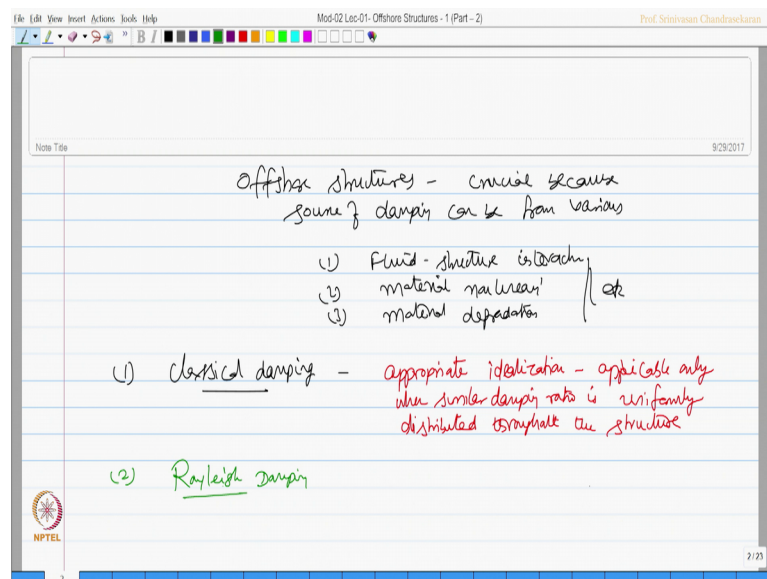 File Edit View Insert Actions Tools Help
Mod-02 Lec-01- Offshore Structures - 1 (Part – 2)
Prof. Srinivasan Chandrasekaran
B I
Note Title
9/29/2017
Offshore structures - crucial because
source of damping can be from various
(1) Fluid - structure interaction
(2) material nonlinearity etc
(3) material degradation
(1) classical damping - appropriate idealization - applicable only
when similar damping ratio is uniformly
distributed throughout the structure
(2) Rayleigh Damping
NPTEL
2/23